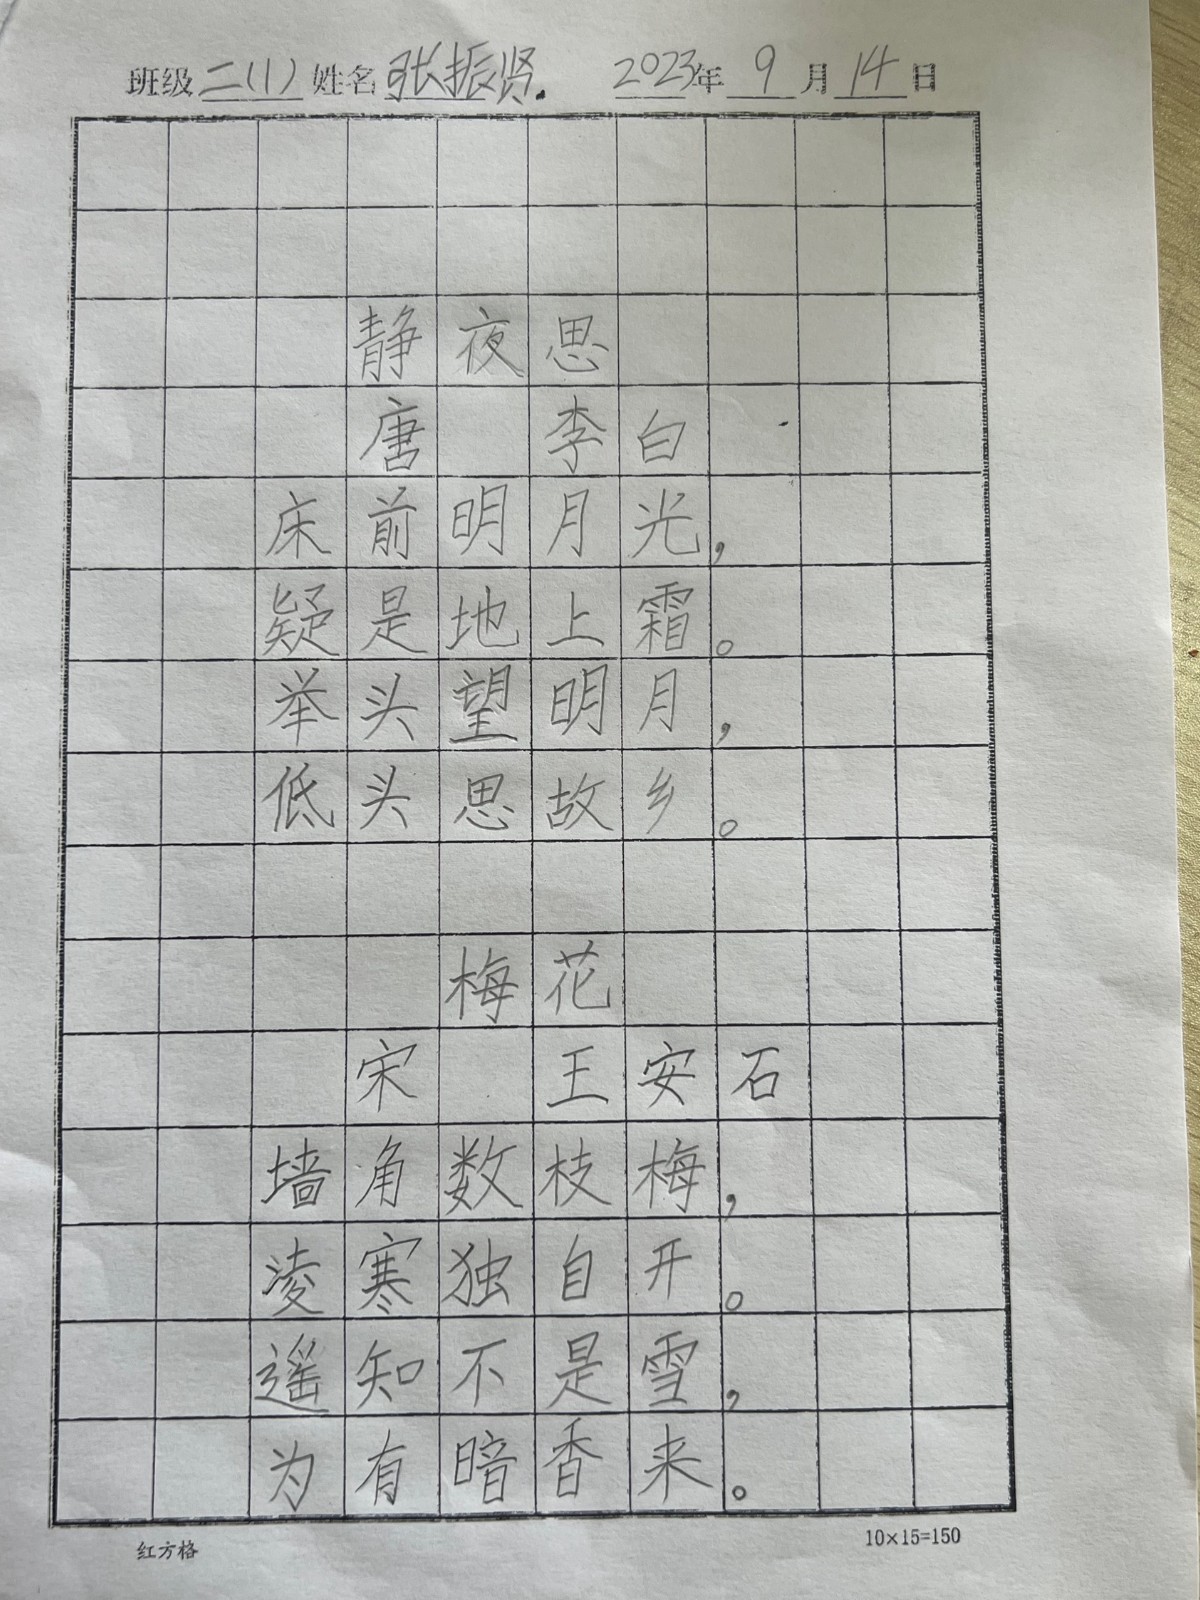 班级 二(1) 姓名 张振贤. 2023年 9月 14日
静夜思
唐 李白
床前明月光，
疑是地上霜。
举头望明月，
低头思故乡。
梅花
宋 王安石
墙角数枝梅，
凌寒独自开。
遥知不是雪，
为有暗香来。
红方格 10×15=150